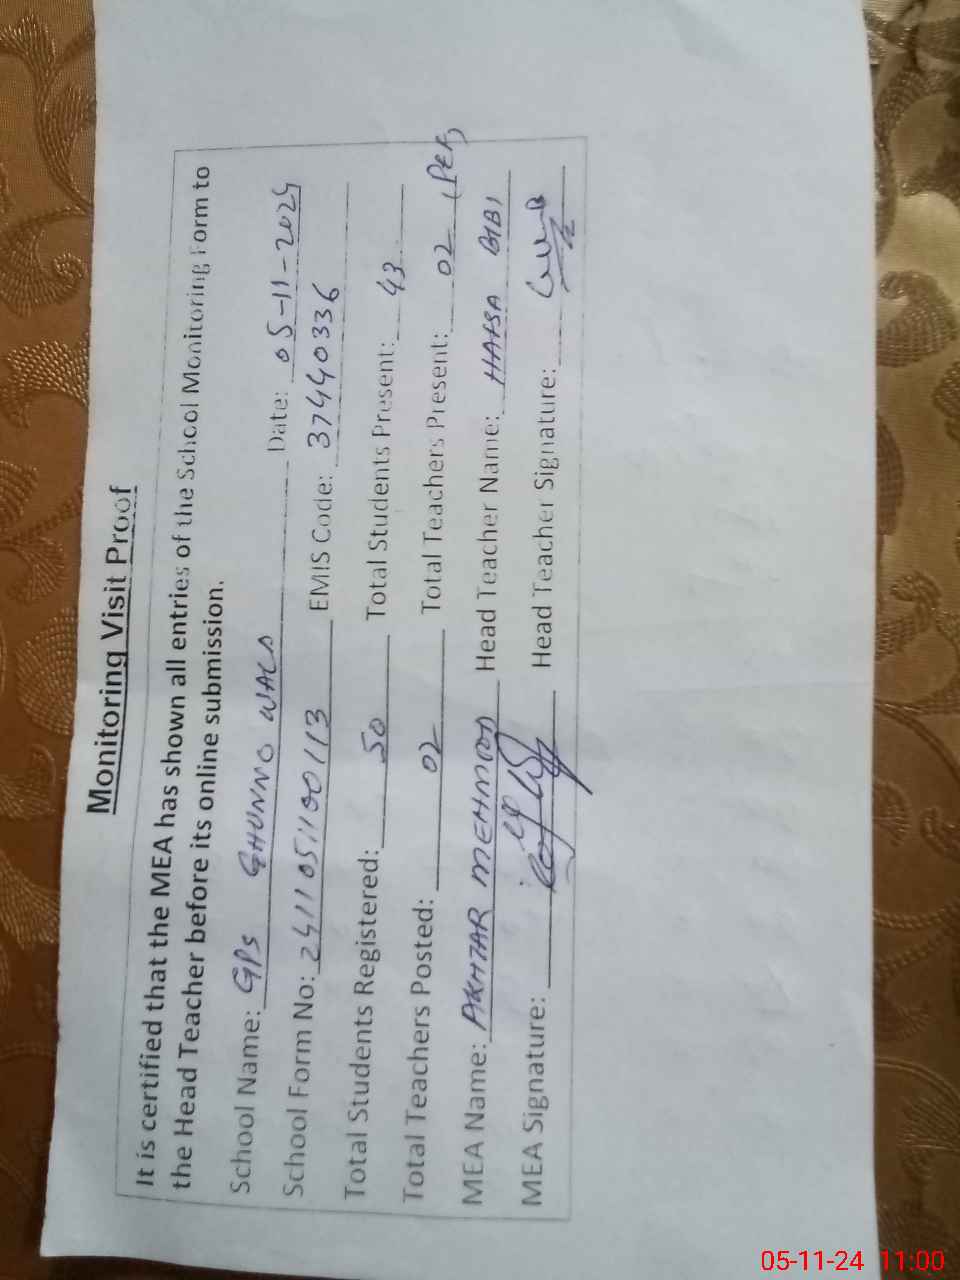 Monitoring Visit Proof
It is certified that the MEA has shown all entries of the School Monitoring Form to
the Head Teacher before its online submission.
School Name: GPS GHUNNO WALA Date: 05-11-2024
School Form No: 241110511100113 EMIS Code: 37440336
Total Students Registered: 50 Total Students Present: 43
Total Teachers Posted: 02 Total Teachers Present: 02 (PEF)
MEA Name: AKHTAR MEHMOOD Head Teacher Name: HAFSA BIBI
MEA Signature: Head Teacher Signature:
05-11-24 11:00